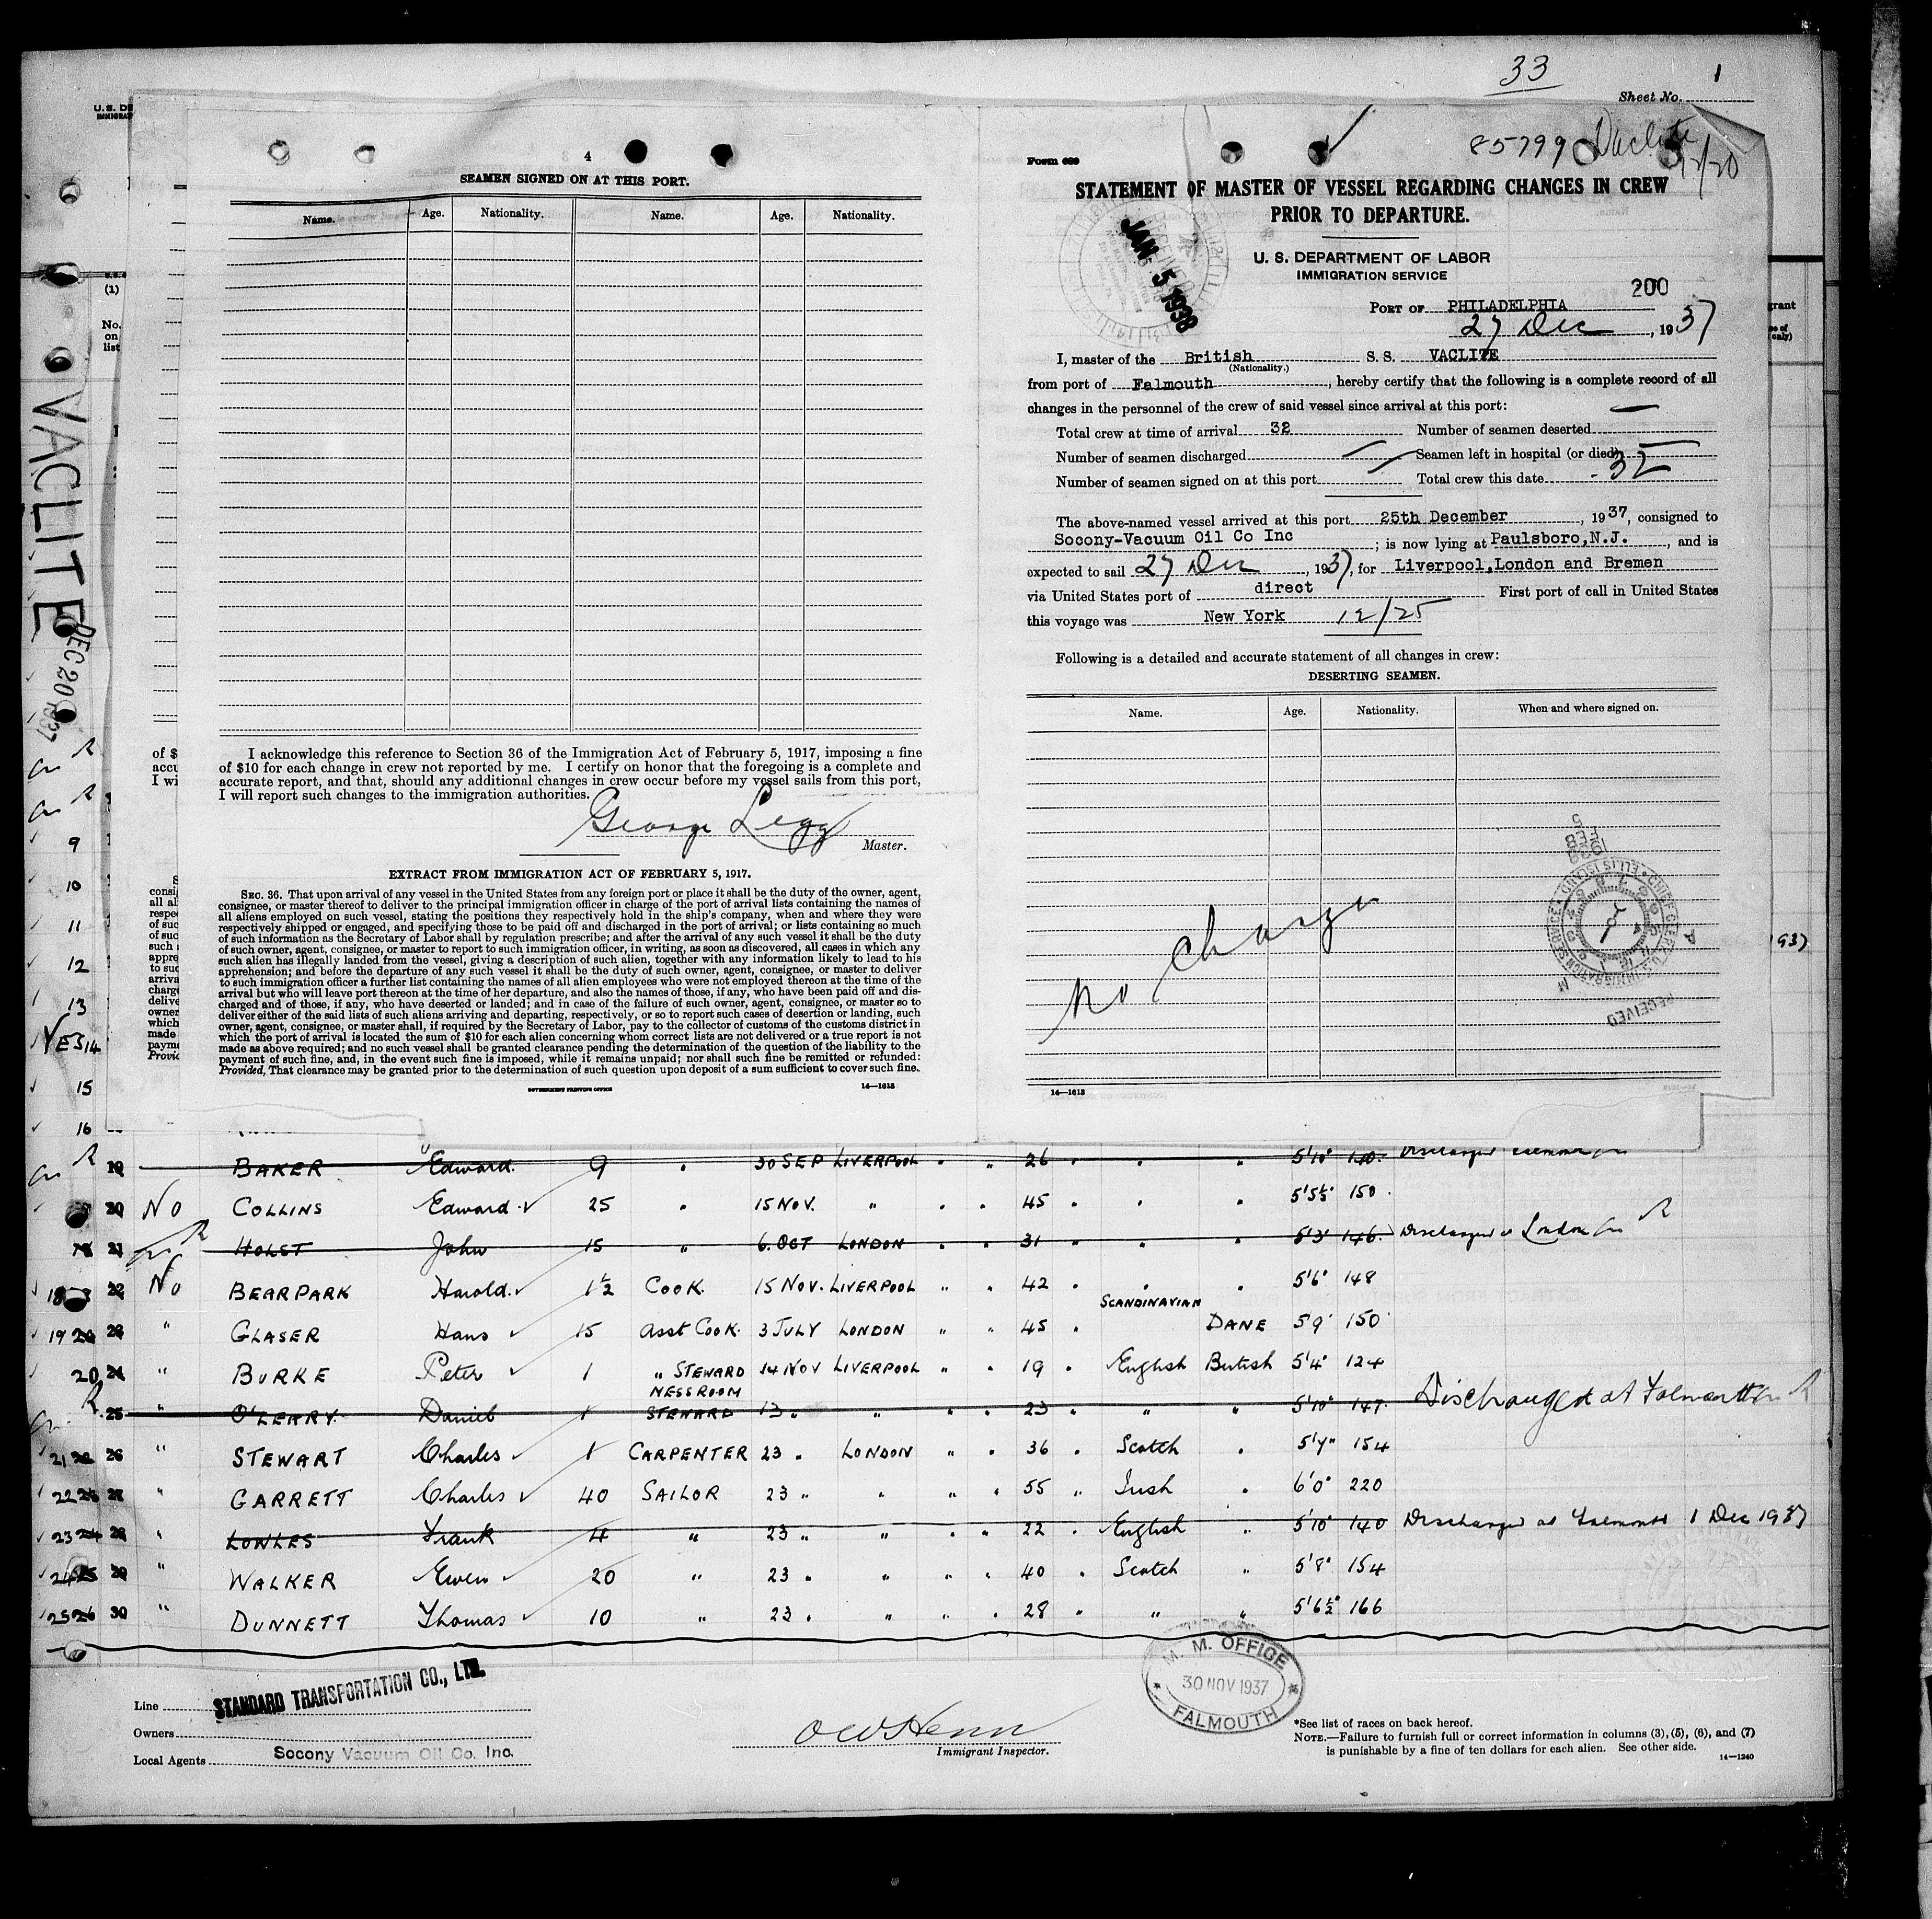 33
1
Sheet No.
U.S. DE
IMMIGRAT
85799 Vaclite
12/20
4
SEAMEN SIGNED ON AT THIS PORT.
Name. Age. Nationality. Name. Age. Nationality.
I acknowledge this reference to Section 36 of the Immigration Act of February 5, 1917, imposing a fine
of $10 for each change in crew not reported by me. I certify on honor that the foregoing is a complete and
accurate report, and that, should any additional changes in crew occur before my vessel sails from this port,
I will report such changes to the immigration authorities.
George Legg
Master.
EXTRACT FROM IMMIGRATION ACT OF FEBRUARY 5, 1917.
SEC. 36. That upon arrival of any vessel in the United States from any foreign port or place it shall be the duty of the owner, agent,
consignee, or master thereof to deliver to the principal immigration officer in charge of the port of arrival lists containing the names of
all aliens employed on such vessel, stating the positions they respectively hold in the ship's company, when and where they were
respectively shipped or engaged, and specifying those to be paid off and discharged in the port of arrival; or lists containing so much
of such information as the Secretary of Labor shall by regulation prescribe; and after the arrival of any such vessel it shall be the duty
of such owner, agent, consignee, or master to report to such immigration officer, in writing, as soon as discovered, all cases in which any
such alien has illegally landed from the vessel, giving a description of such alien, together with any information likely to lead to his
apprehension; and before the departure of any such vessel it shall be the duty of such owner, agent, consignee, or master to deliver
to such immigration officer a further list containing the names of all alien employees who were not employed thereon at the time of the
arrival but who will leave port thereon at the time of her departure, and also the names of those, if any, who have been paid off and dis-
charged and of those, if any, who have deserted or landed; and in case of the failure of such owner, agent, consignee, or master so to
deliver either of the said lists of such aliens arriving and departing, respectively, or so to report such cases of desertion or landing, such
owner, agent, consignee, or master shall, if required by the Secretary of Labor, pay to the collector of customs of the customs district in
which the port of arrival is located the sum of $10 for each alien concerning whom correct lists are not delivered or a true report is not
made as above required; and no such vessel shall be granted clearance pending the determination of the question of the liability to the
payment of such fine, and, in the event such fine is imposed, while it remains unpaid; nor shall such fine be remitted or refunded:
Provided, That clearance may be granted prior to the determination of such question upon deposit of a sum sufficient to cover such fine.
GOVERNMENT PRINTING OFFICE 14—1613
Form 689
STATEMENT OF MASTER OF VESSEL REGARDING CHANGES IN CREW
PRIOR TO DEPARTURE.
JAN 5 1938
U. S. DEPARTMENT OF LABOR
IMMIGRATION SERVICE
200
PORT OF PHILADELPHIA
27 Dec, 1937
I, master of the British S. S. VACLITE
(Nationality.)
from port of Falmouth, hereby certify that the following is a complete record of all
changes in the personnel of the crew of said vessel since arrival at this port:
Total crew at time of arrival 32 Number of seamen deserted —
Number of seamen discharged — Seamen left in hospital (or died) —
Number of seamen signed on at this port — Total crew this date 32
The above-named vessel arrived at this port 25th December, 1937, consigned to
Socony-Vacuum Oil Co Inc; is now lying at Paulsboro, N.J., and is
expected to sail 27 Dec, 1937, for Liverpool, London and Bremen
via United States port of direct First port of call in United States
this voyage was New York 12/25
Following is a detailed and accurate statement of all changes in crew:
DESERTING SEAMEN.
Name. Age. Nationality. When and where signed on.
No change
1938
FEB
5
RECEIVED
14—1613
VACLITE
DEC 20 1937
(1)
No.
on
list
9
10
11
12
13
YES 14
15
16
937
19 BAKER Edward. 9 " 30 SEP LIVERPOOL " " 26 " " " 5'10" 140.
20 No COLLINS Edward 25 " 15 NOV. " " " 45 " " " 5'5½" 150
21 HOLST John 15 " 6. OCT LONDON " " 31 " " " 5'3" 146. Discharged at London
18 22 No BEARPARK Harold. 1½ COOK. 15 NOV. LIVERPOOL " " 42 " " " 5'6" 148
19 23 " GLASER Hans 15 Asst COOK. 3 JULY LONDON " " 45 " SCANDINAVIAN DANE 5'9" 150
20 24 " BURKE Peter 1 " STEWARD 14 NOV LIVERPOOL " " 19 " English British 5'4" 124
25 " O'LEARY. Daniel 1 MESSROOM STEWARD 13 " " " " 23 " " " 5'10" 147. Discharged at Falmouth
21 26 " STEWART Charles 1 CARPENTER 23 " LONDON " " 36 " Scotch " 5'7" 154
22 27 " GARRETT Charles 40 SAILOR 23 " " " " 55 " Irish " 6'0" 220
23 24 28 " LOWLES Frank 4 " 23 " " " " 22 " English " 5'10" 140 Discharged at Falmouth 1 Dec 1937
24 25 29 " WALKER Ewen 20 " 23 " " " " 40 " Scotch " 5'8" 154
25 26 30 " DUNNETT Thomas 10 " 23 " " " " 28 " " " 5'6½" 166
M. M. OFFICE
30 NOV 1937
FALMOUTH
Line STANDARD TRANSPORTATION CO., LTD.
Owners
Local Agents Socony Vacuum Oil Co. Inc.
O W Henn
Immigrant Inspector.
*See list of races on back hereof.
NOTE.—Failure to furnish full or correct information in columns (3), (5), (6), and (7)
is punishable by a fine of ten dollars for each alien. See other side.
14—1240